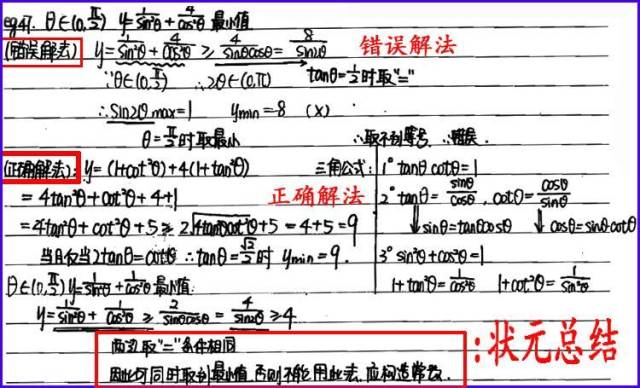 eg47. θ∈(0,π/2) y=1/sin²θ+4/cos²θ 最小值
(错误解法) y=1/sin²θ+4/cos²θ ≥ 4/sinθcosθ = 8/sin2θ 错误解法
∵θ∈(0,π/2) ∴2θ∈(0,π) tanθ=1/2时取"="
∴sin2θ max=1 ymin=8 (×)
θ=π/2时取最小 ∴取不到等号 ∴错误.
(正确解法): y=(1+cot²θ)+4(1+tan²θ)
=4tan²θ+cot²θ+4+1 正确解法
=4tan²θ+cot²θ+5 ≥ 2√4tan²θcot²θ+5=4+5=9
当且仅当2tanθ=cotθ ∴tanθ=√2/2时 ymin=9.
三角公式: 1° tanθcotθ=1
2° tanθ=sinθ/cosθ, cotθ=cosθ/sinθ
↓sinθ=tanθcosθ ↓cosθ=sinθcotθ
3° sin²θ+cos²θ=1
1+tan²θ=1/cos²θ 1+cot²θ=1/sin²θ
θ∈(0,π/2) y=1/sin²θ+1/cos²θ 最小值
y=1/sin²θ+1/cos²θ ≥ 2/sinθcosθ = 4/sin2θ ≥4
两次取"="条件相同
因此可同时取到最小值,否则不能用此法,应构造常数.
:状元总结